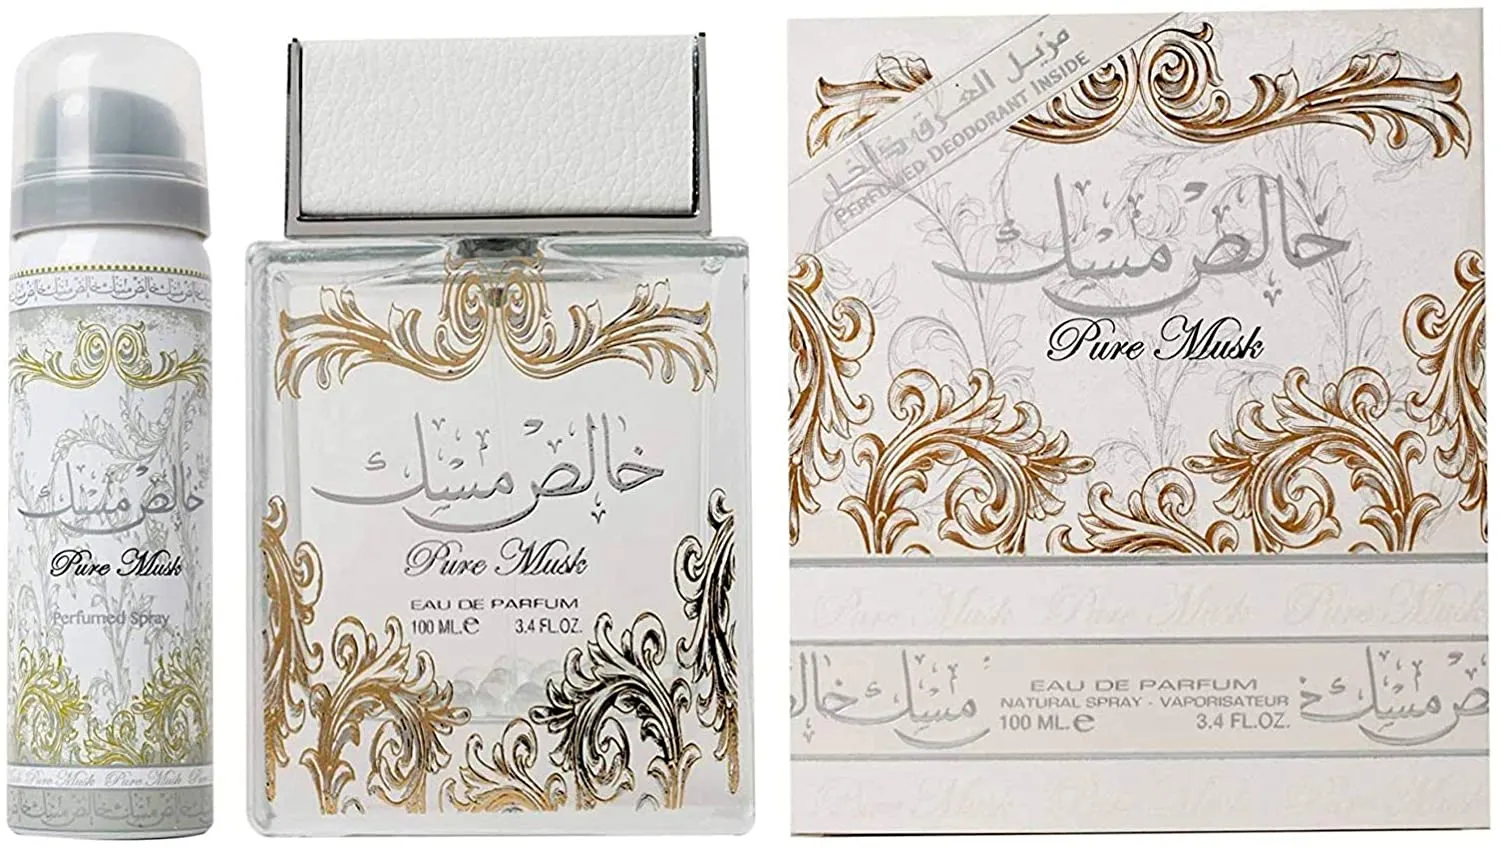 خالص مسك
Pure Musk
Perfumed Spray
Pure Musk Pure Musk
خالص مسك
Pure Musk
EAU DE PARFUM
100 ML.e 3.4 FL.OZ.
مزيل العرق داخل
PERFUMED DEODORANT INSIDE
خالص مسك
Pure Musk
Pure Musk Pure Musk Pure Musk
خالص مسك
EAU DE PARFUM
NATURAL SPRAY - VAPORISATEUR
100 ML.e 3.4 FL.OZ.
Pure Musk Pure Musk Pure Musk